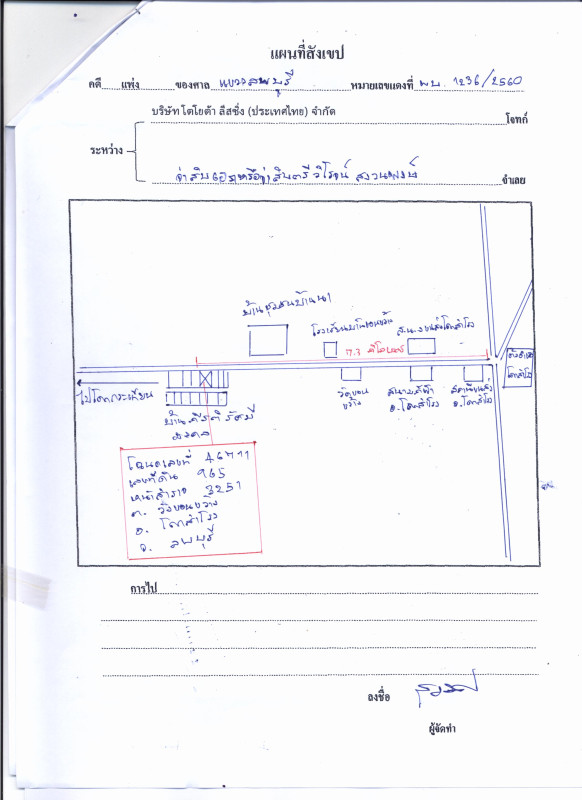 แผนที่สังเขป
คดี แพ่ง ของศาล แขวงลพบุรี หมายเลขแดงที่ ผบ. 1236/2560
บริษัท โตโยต้า ลีสซิ่ง (ประเทศไทย) จำกัด โจทก์
ระหว่าง
จ่าสิบเอกหรือจ่าสิบตรี วิโรจน์ จำเลย
บ้านชุมชนบ้านนา
7.3 กิโลเมตร
ไปโคกกระเทียม
วัดขอนขว้าง
สนามกีฬา อ.โคกสำโรง
สถานีขนส่ง อ.โคกสำโรง
โคกสำโรง
บ้านคีรีรัศมี
มงคล
โฉนดเลขที่ 46711
เลขที่ดิน 965
หน้าสำรวจ 3251
ต. วังขอนขว้าง
อ. โคกสำโรง
จ. ลพบุรี
การไป
ลงชื่อ
ผู้จัดทำ